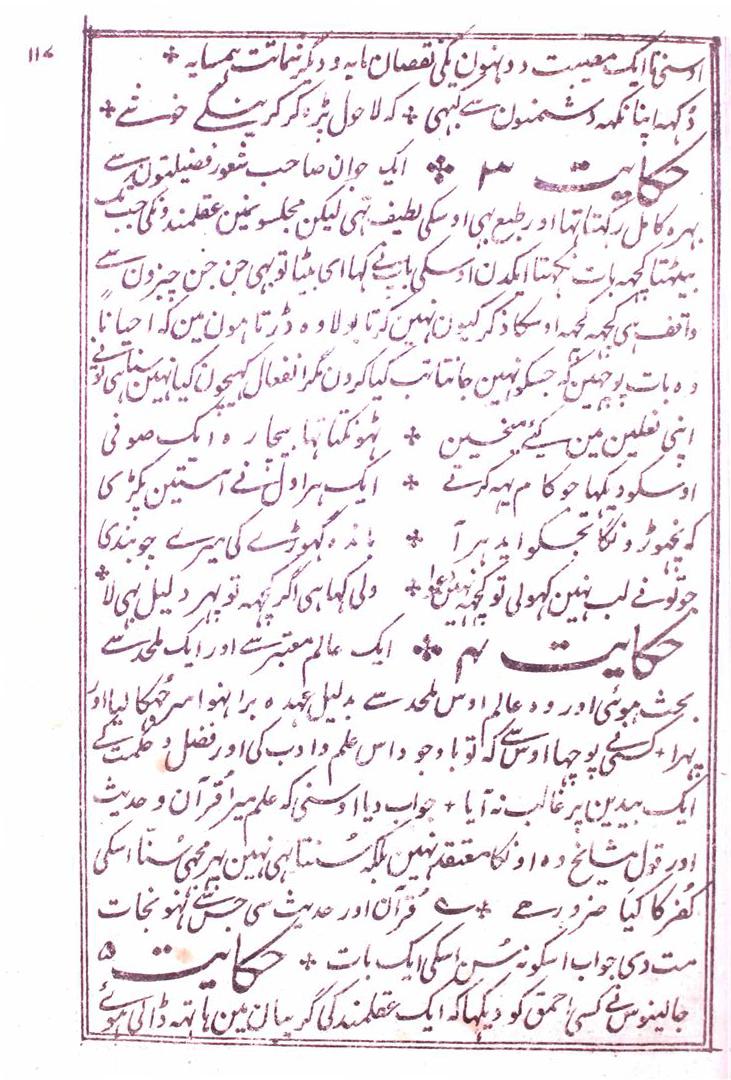 ۱۱۷
اوسنی تا ایک معیبت دو نہون یکی نقصان مایہ و دیگر شماتت ہمسایہ +
دُکہہ اپنا نکہہ دشمنون سے کبہی + کہ لاحول پڑہ کر کرینگے خوشی +
حکایت ۳ + ایک جوان صاحب شعور فضیلتون سے
بہرہ کامل رکہتا تہا اور طبع بہی اوسکی لطیف تہی لیکن مجلسون مین عقلمندونکی جب تک
بیٹہتا کچہہ بات نکہتا ایکدن اوسکی باپ نے کہا ای بیٹا تو بہی جن جن چیزون سے
واقف ہی کچہہ کچہہ اوسکا ذکر کیون نہین کرتا بولا وہ ڈرتا ہون مین کہ احیاناً
وہ بات پوچہین کہ جسکو نہین جانتا تب کیا کرون مگر انفعال کہیچون کیا نہین سنا ہی تونے
اپنی نعلین مین کیئے میخین + ٹہونکتا تہا بیچارہ ایک صوفی
اوسکو دیکہا جو کام یہہ کرتے + ایک ہراول نے استین پکڑی
کہ نچہوڑونگا تجکو ایدہر آ + باندہ گہوڑے کی میرے چوبندی
جو تونے لب نہین کہولی تو کچہہ نہین + ولی کہا ہی اگر کچہہ تو پہر دلیل بہی لا +
حکایت ۴ + ایک عالم معتبر سے اور ایک ملحد سے
بحث ہوئی اور وہ عالم اوس ملحد سے بدلیل عہدہ برا نہوا سر جُہکا لیا اور
پہرا + کسی نے پوچہا اوس سے کہ تو باوجود اس علم و ادب کی اور فضل و حکمت کے
ایک بیدین پر غالب نہ آیا + جواب دیا اوسنی کہ علم میرا قرآن و حدیث
اور قول مشایخ وہ اونکا معتقد نہین بلکہ سُنتا ہی نہین پہر مجہی سُنّا اسکی
کُفر کا کیا ضرور ہے + قُرآن اور حدیث سی جس سے نہو نجات
مت دی جواب اسکو نہ سُن اسکی ایک بات + حکایت ۵
جالینوس نے کسی احمق کو دیکہا کہ ایک عقلمند کی گریبان مین ہاتہہ ڈالی ہوئے